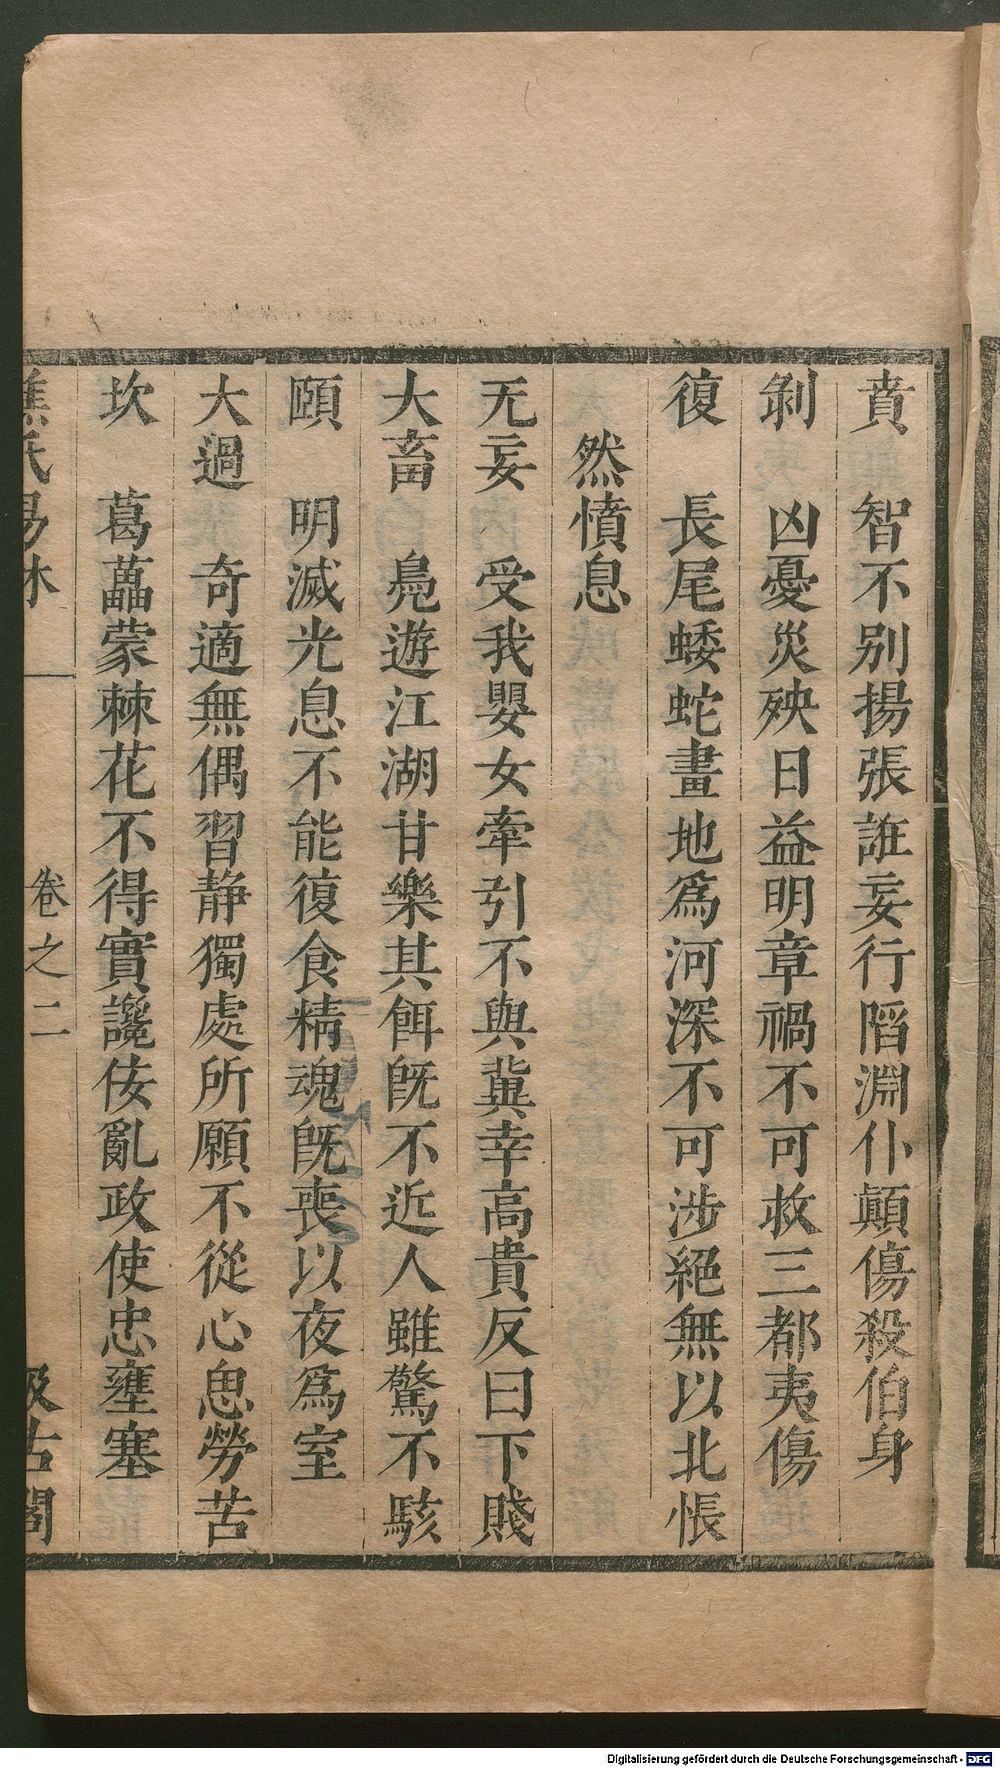 賁　智不別揚張誑妄行䧟淵仆顛傷殺伯身
剝　凶憂災殃日益明章禍不可救三都夷傷
復　長尾蜲蛇畫地爲河深不可涉絕無以北悵
然憤息
无妄　受我嬰女牽引不與冀幸高貴反曰下賤
大畜　鳧遊江湖甘樂其餌旣不近人雖驚不駭
頤　明滅光息不能復食精魂旣喪以夜爲室
大過　奇適無偶習静獨處所願不從心思勞苦
坎　葛藟蒙棘花不得實讒佞亂政使忠壅塞
焦氏易林　卷之二　汲古閣
Digitalisierung gefördert durch die Deutsche Forschungsgemeinschaft - DFG